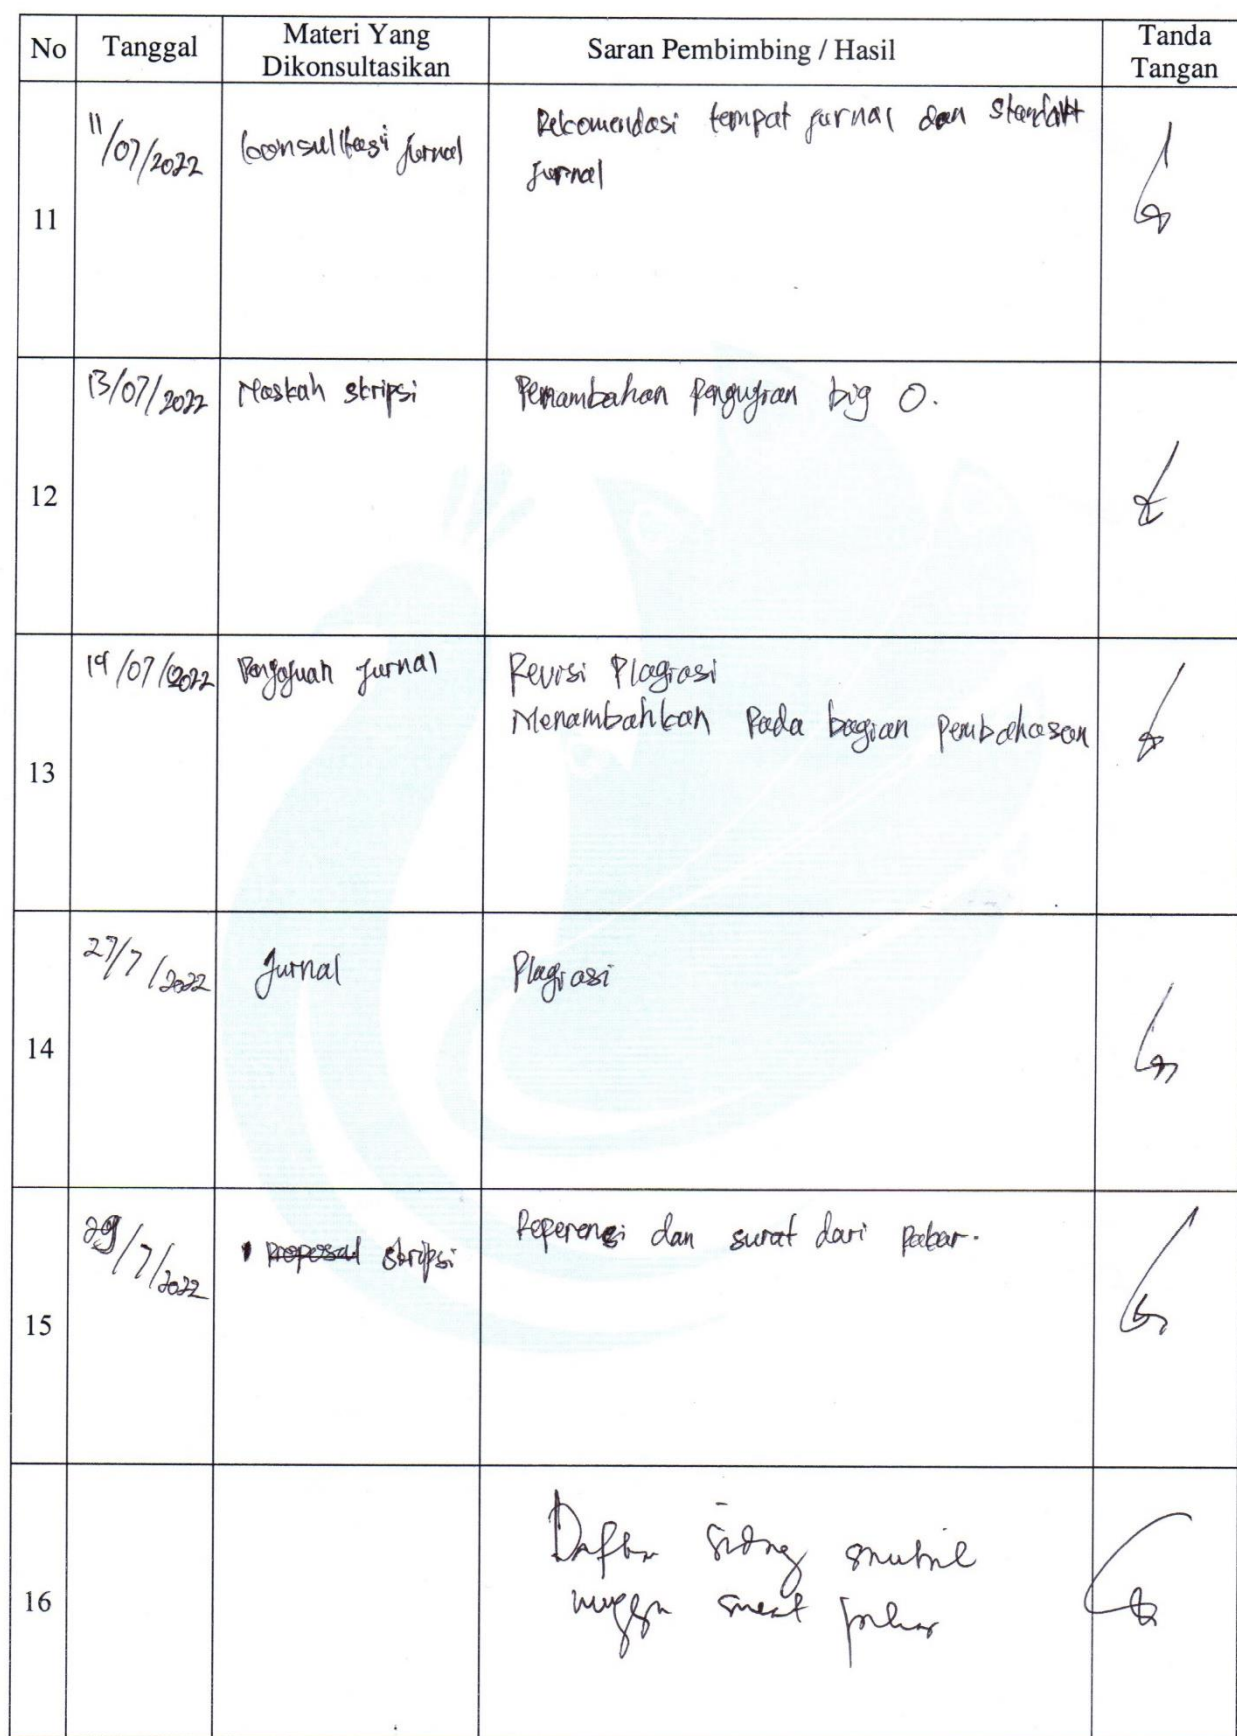 No Tanggal Materi Yang Dikonsultasikan Saran Pembimbing / Hasil Tanda Tangan
11 11/07/2022 konsultasi jurnal Rekomendasi tempat jurnal dan standart
jurnal
12 13/07/2022 Naskah skripsi Penambahan Pengujian big O.
13 19/07/2022 Pengajuan jurnal Revisi Plagiasi
Menambahkan Pada bagian Pembahasan
14 27/7/2022 Jurnal Plagiasi
15 29/7/2022 proposal skripsi Referensi dan surat dari pakar.
16 Daftar sidang
surat pakar